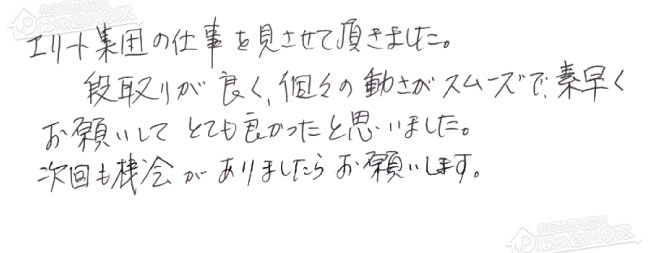 エリート集団の仕事を見させて頂きました。
段取りが良く、個々の動きがスムーズで、素早く
お願いして とても良かったと思いました。
次回も機会がありましたらお願いします。